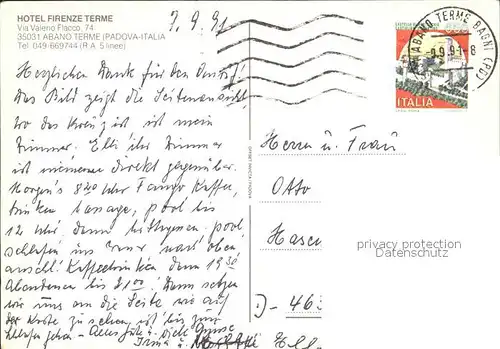 HOTEL FIRENZE TERME
Via Valerio Flacco, 74
35031 ABANO TERME (PADOVA-ITALIA)
Tel. 049-669744 (R.A. 5 linee)
7.9.91
Herzlichen Dank für den
Das Bild zeigt die Seitenansicht,
wo das Kreuz ist ist mein
Zimmer. Elli ihr Zimmer
ist meinem direkt gegenüber.
Morgens 8 20 Uhr Fango Kaffee
trinken pool bis
12 Uhr. Dann pool
schlafen ins nach oben
anschl. Kaffeetrinken dann 19 30
Abendessen bis 21 00. Dann setzen
wir uns um die
der Karte zu sehen ist bis zum
schlafen gehen - Alles Gute u. viele Grüsse
Irma u.
ABANO TERME BAGNI (PD)
-9.9.91-8
ITALIA
Herrn u. Frau
Otto
privacy protection
Datenschutz
D-46